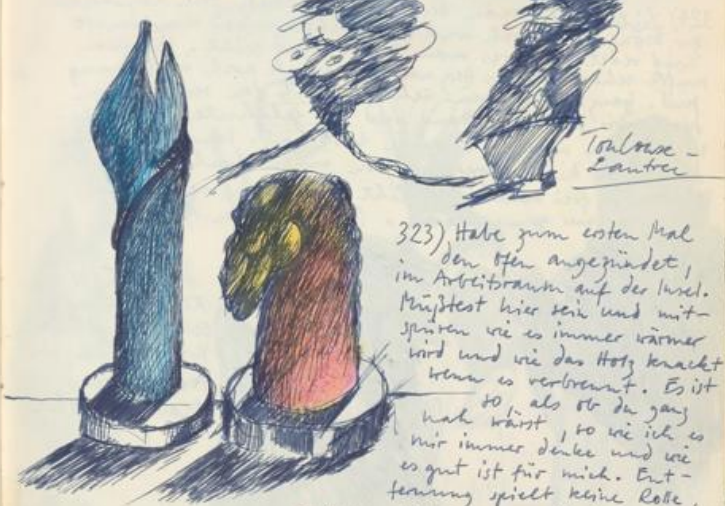 Toulouse-
Lautrec
323) Habe zum ersten Mal
den Ofen angezündet,
im Arbeitsraum auf der Insel.
Müßtest hier sein und mit-
spüren wie es immer wärmer
wird und wie das Holz knackt
wenn es verbrennt. Es ist
so, als ob du ganz
nah wärst, so wie ich es
mir immer denke und wie
es gut ist für mich. Ent-
fernung spielt keine Rolle,